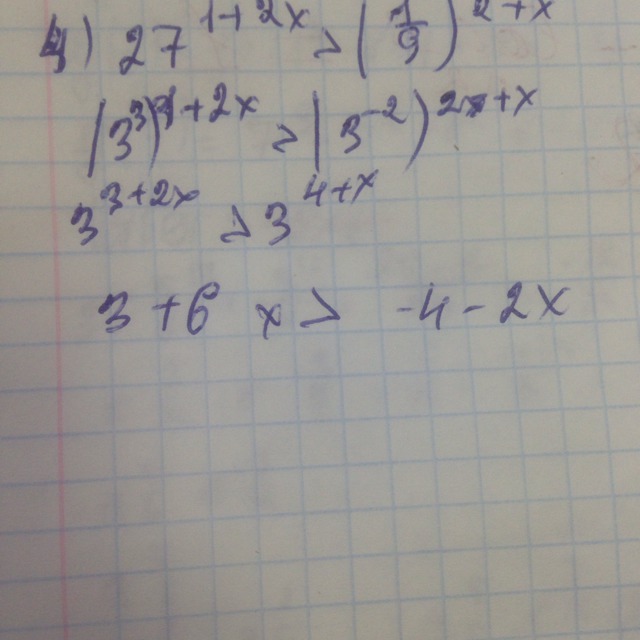 4) 27^{1+2x} > (1/9)^{2+x}
(3^3)^{1+2x} > (3^{-2})^{2+x}
3^{3+2x} > 3^{4+x}
3 + 6x > -4 - 2x